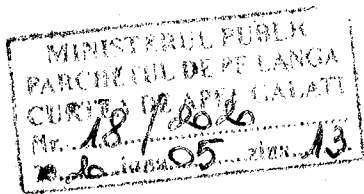 MINISTERUL PUBLIC
PARCHETUL DE PE LANGA
CURTEA DE APEL GALATI
Nr. 18 /
luna 05 ziua 13